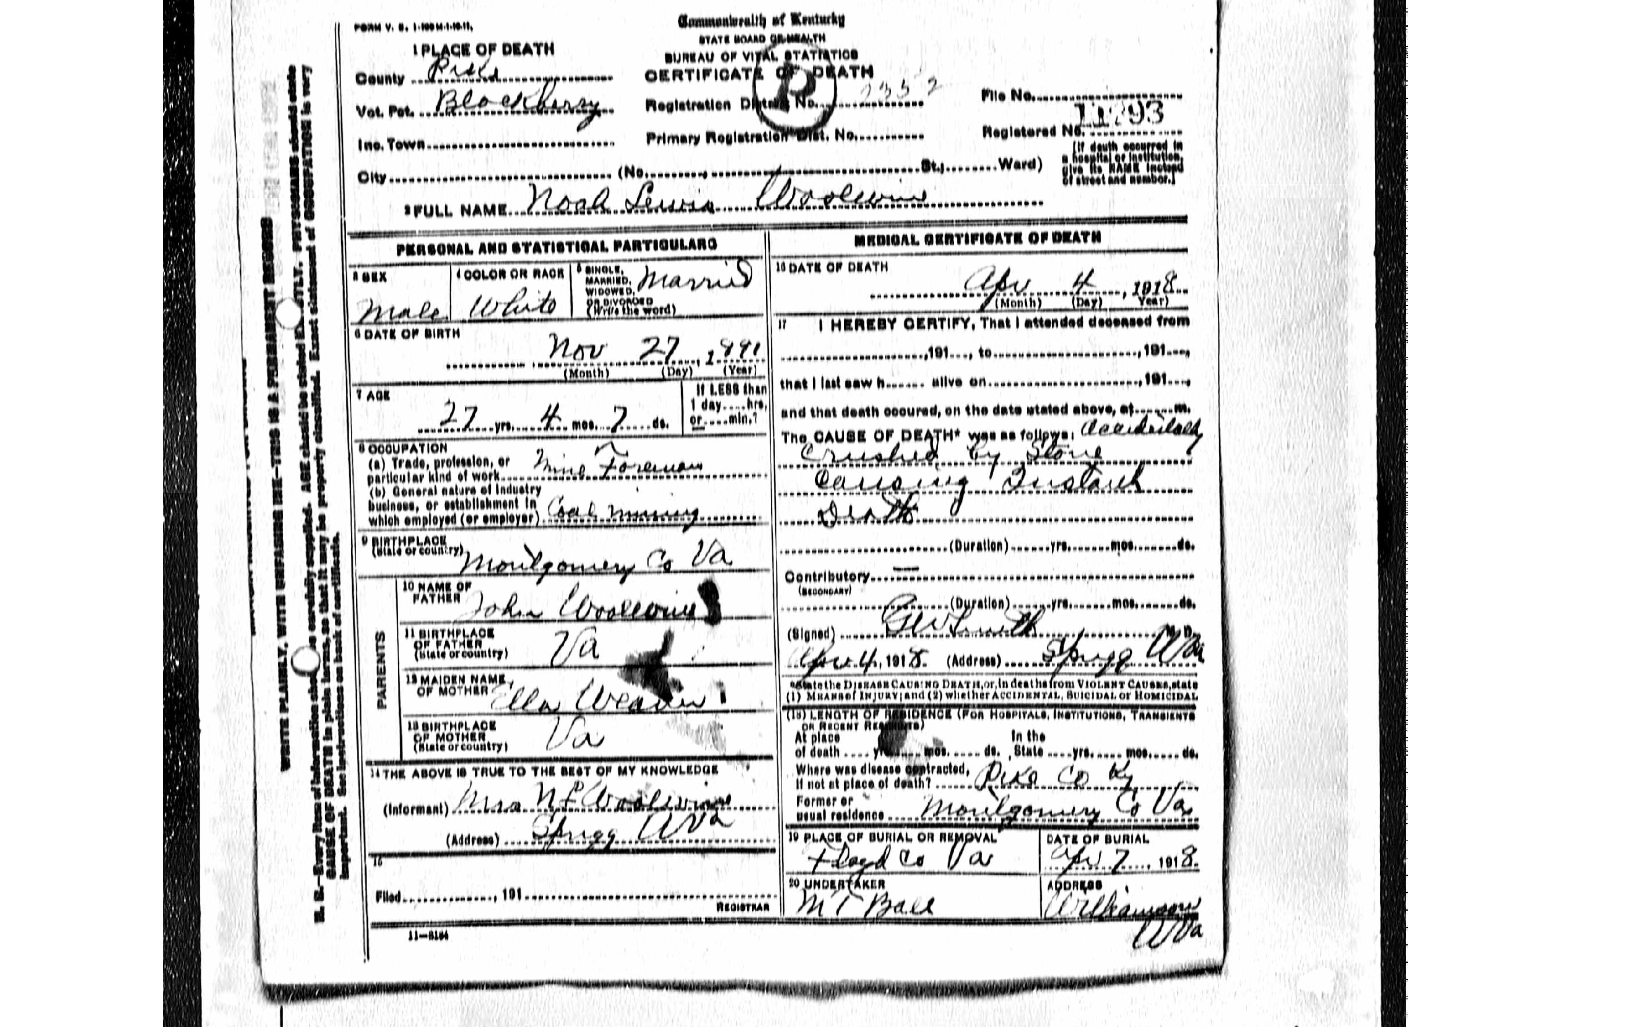 FORM V. S. 1-100M-1-10-11.
Commonwealth of Kentucky
STATE BOARD OF HEALTH
BUREAU OF VITAL STATISTICS
CERTIFICATE OF DEATH
1 PLACE OF DEATH
County Pike
Vot. Pct. Blackberry
Registration District No. 7352
File No.
Inc. Town
Primary Registration Dist. No.
Registered No. 11793
City (No. St.; Ward)
[If death occurred in a hospital or institution, give its NAME instead of street and number.]
2 FULL NAME Noah Lewis Woolwine
PERSONAL AND STATISTICAL PARTICULARS
3 SEX Male
4 COLOR OR RACE White
5 SINGLE, MARRIED, WIDOWED, OR DIVORCED (Write the word) Married
6 DATE OF BIRTH
Nov 27, 1891
(Month) (Day) (Year)
7 AGE
27 yrs. 4 mos. 7 ds.
If LESS than 1 day....hrs, or....min.?
8 OCCUPATION
(a) Trade, profession, or particular kind of work Mine Foreman
(b) General nature of Industry business, or establishment in which employed (or employer) Coal mining
9 BIRTHPLACE
(State or country) Montgomery Co Va
PARENTS
10 NAME OF FATHER John Woolwine
11 BIRTHPLACE OF FATHER (State or country) Va
12 MAIDEN NAME OF MOTHER Ella Weaver
13 BIRTHPLACE OF MOTHER (State or country) Va
14 THE ABOVE IS TRUE TO THE BEST OF MY KNOWLEDGE
(Informant) Mrs N L Woolwine
(Address) Sprigg W Va
15
Filed, 191
REGISTRAR
11—8184
MEDICAL CERTIFICATE OF DEATH
16 DATE OF DEATH
Apr 4, 1918
(Month) (Day) (Year)
17 I HEREBY CERTIFY, That I attended deceased from
, 191..., to, 191...,
that I last saw h...... alive on, 191...,
and that death occured, on the date stated above, at......m.
The CAUSE OF DEATH* was as follows: Accidentally
Crushed by Stone
Causing Instant
Death
(Duration) yrs. mos. ds.
Contributory —
(SECONDARY)
(Duration) yrs. mos. ds.
(Signed) G W Smith M. D.
Apr 4, 1918. (Address) Sprigg W Va
*State the DISEASE CAUSING DEATH, or, in deaths from VIOLENT CAUSES, state
(1) MEANS of INJURY; and (2) whether ACCIDENTAL, SUICIDAL or HOMICIDAL
(18) LENGTH OF RESIDENCE (FOR HOSPITALS, INSTITUTIONS, TRANSIENTS
OR RECENT RESIDENTS)
At place of death yrs. mos. ds. In the State yrs. mos. ds.
Where was disease contracted, If not at place of death? Pike Co Ky
Former or usual residence Montgomery Co Va
19 PLACE OF BURIAL OR REMOVAL
Floyd Co Va
DATE OF BURIAL
Apr 7, 1918.
20 UNDERTAKER
M T Ball
ADDRESS
Williamson
W Va
WRITE PLAINLY, WITH UNFADING INK—THIS IS A PERMANENT RECORD
N. B.—Every item of information should be carefully supplied. AGE should be stated EXACTLY. PHYSICIANS should state
CAUSE OF DEATH in plain terms, so that it may be properly classified. Exact statement of OCCUPATION is very
important. See instructions on back of certificate.